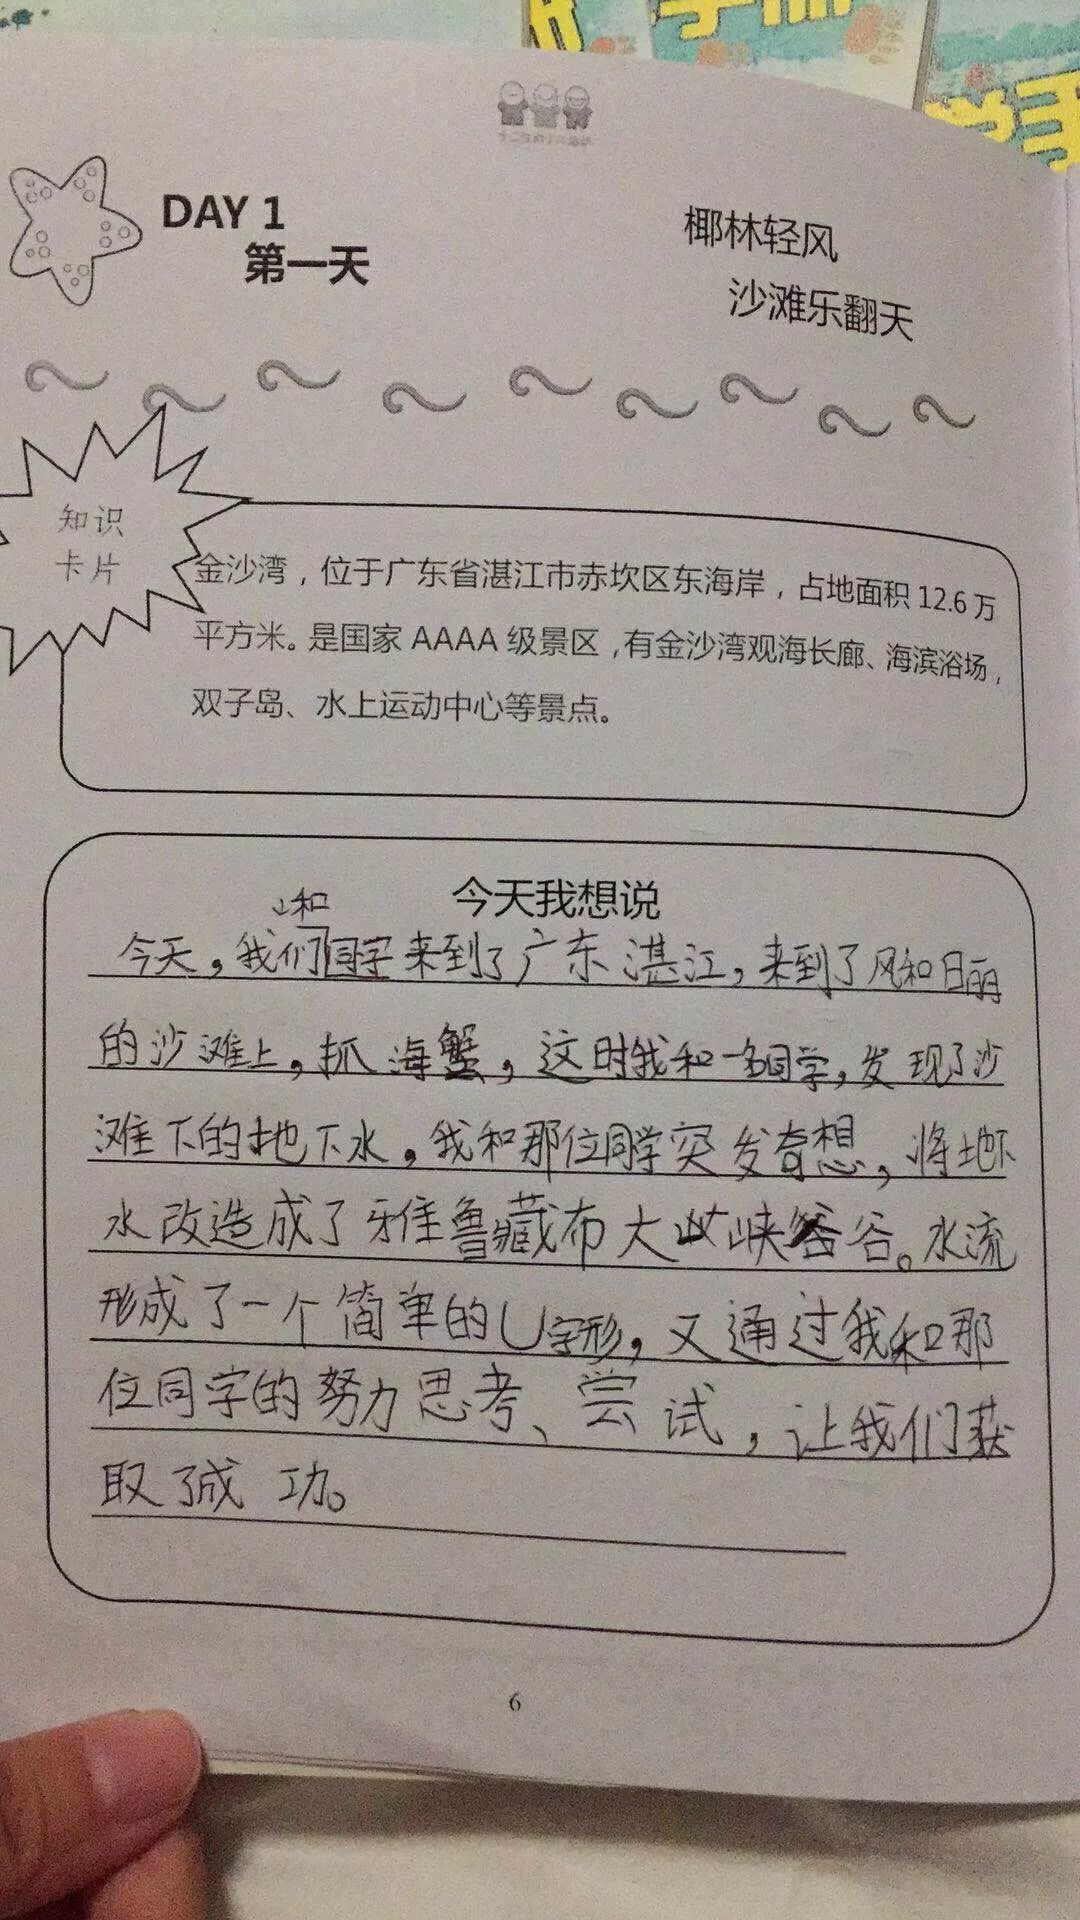 DAY 1
第一天
椰林轻风
沙滩乐翻天
知识
卡片
金沙湾，位于广东省湛江市赤坎区东海岸，占地面积 12.6 万
平方米。是国家 AAAA 级景区，有金沙湾观海长廊、海滨浴场，
双子岛、水上运动中心等景点。
今天我想说
和
今天，我们同学来到了广东湛江，来到了风和日丽
的沙滩上，抓海蟹，这时我和一名同学，发现了沙
滩下的地下水，我和那位同学突发奇想，将地下
水改造成了雅鲁藏布大峡谷。水流
形成了一个简单的U字形，又通过我和那
位同学的努力思考、尝试，让我们获
取了成功。
6